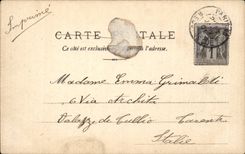 Imprimé
CARTE POSTALE
Ce côté est exclusivement réservé à l'adresse.
PARIS
Madame Emma Grimaldi
6 Via Archita
Palazzo de Tullio Tarente
Italie